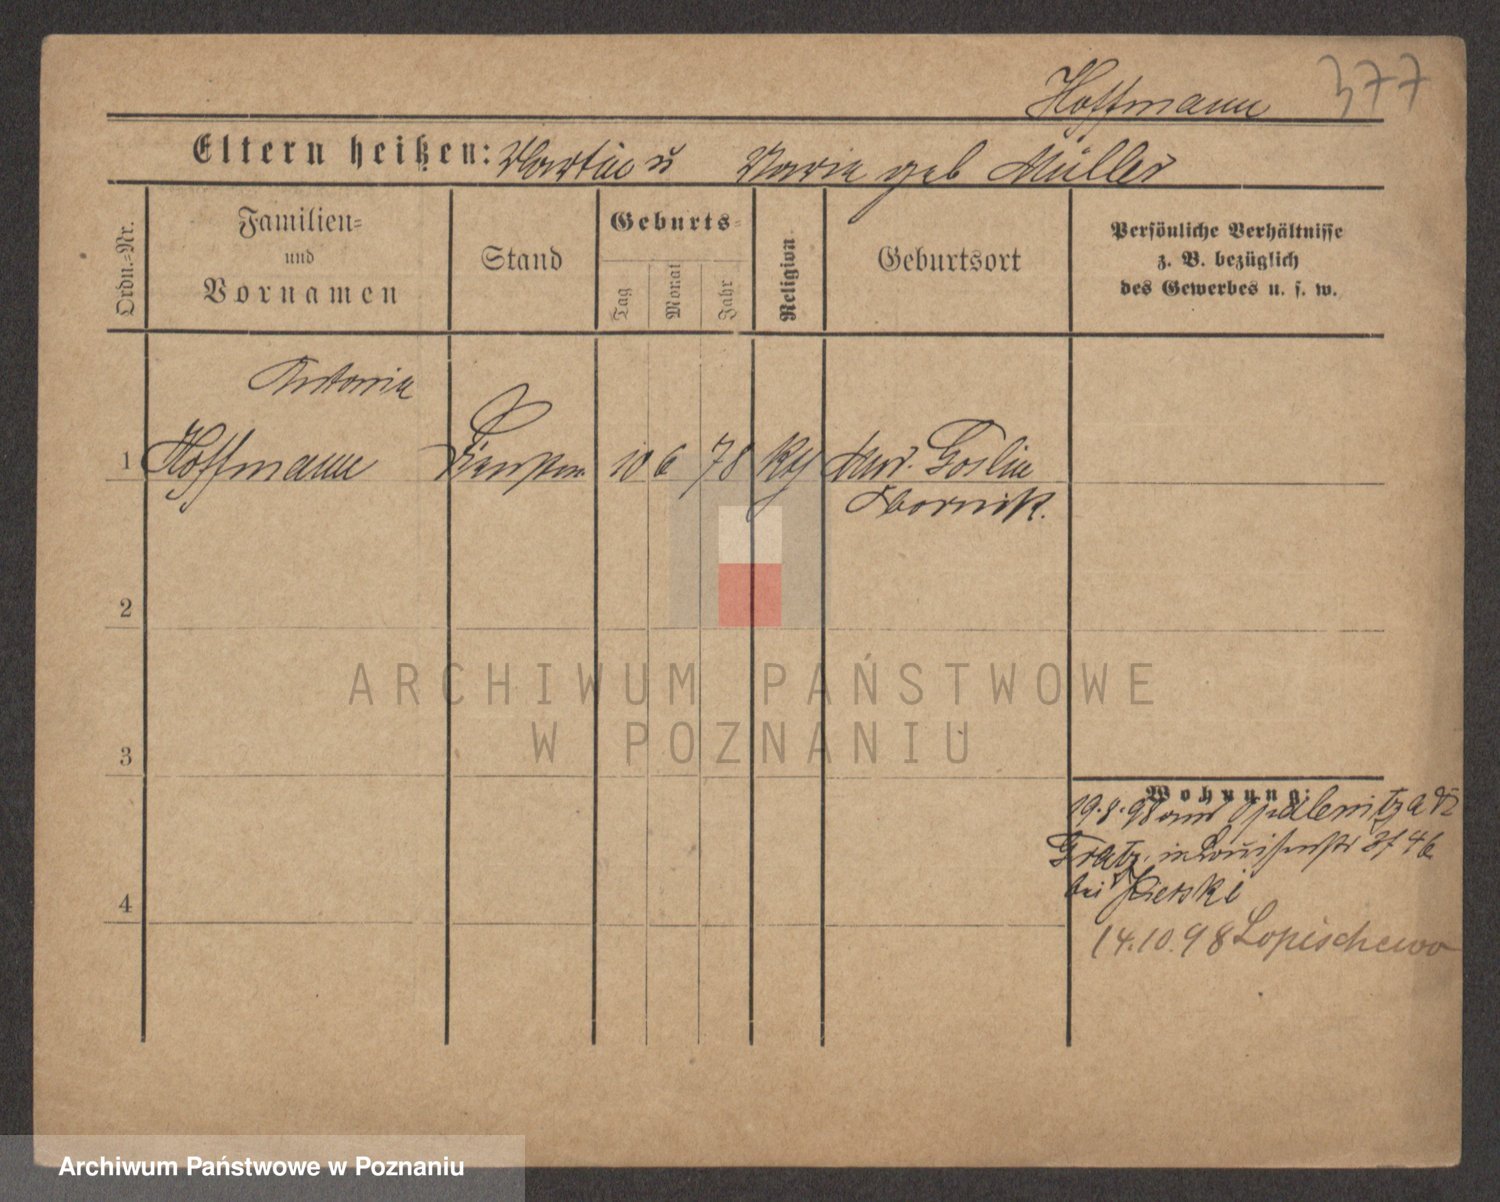 Hoffmann 377
Eltern heißen: Martin u Maria geb Müller
Ordn.-Nr.
Familien-
und
Vornamen
Stand
Geburts-
Tag
Monat
Jahr
Religion
Geburtsort
Persönliche Verhältnisse
z. B. bezüglich
des Gewerbes u. s. w.
Antonie
1 Hoffmann 10 6 78 Goslin
Obornik.
2
3
4
Wohnung:
19.8.98 aus Opalenitza
Gratz. in Louisenstr
bei
14.10.98 Lopischewo
ARCHIWUM PAŃSTWOWE
W POZNANIU
Archiwum Państwowe w Poznaniu